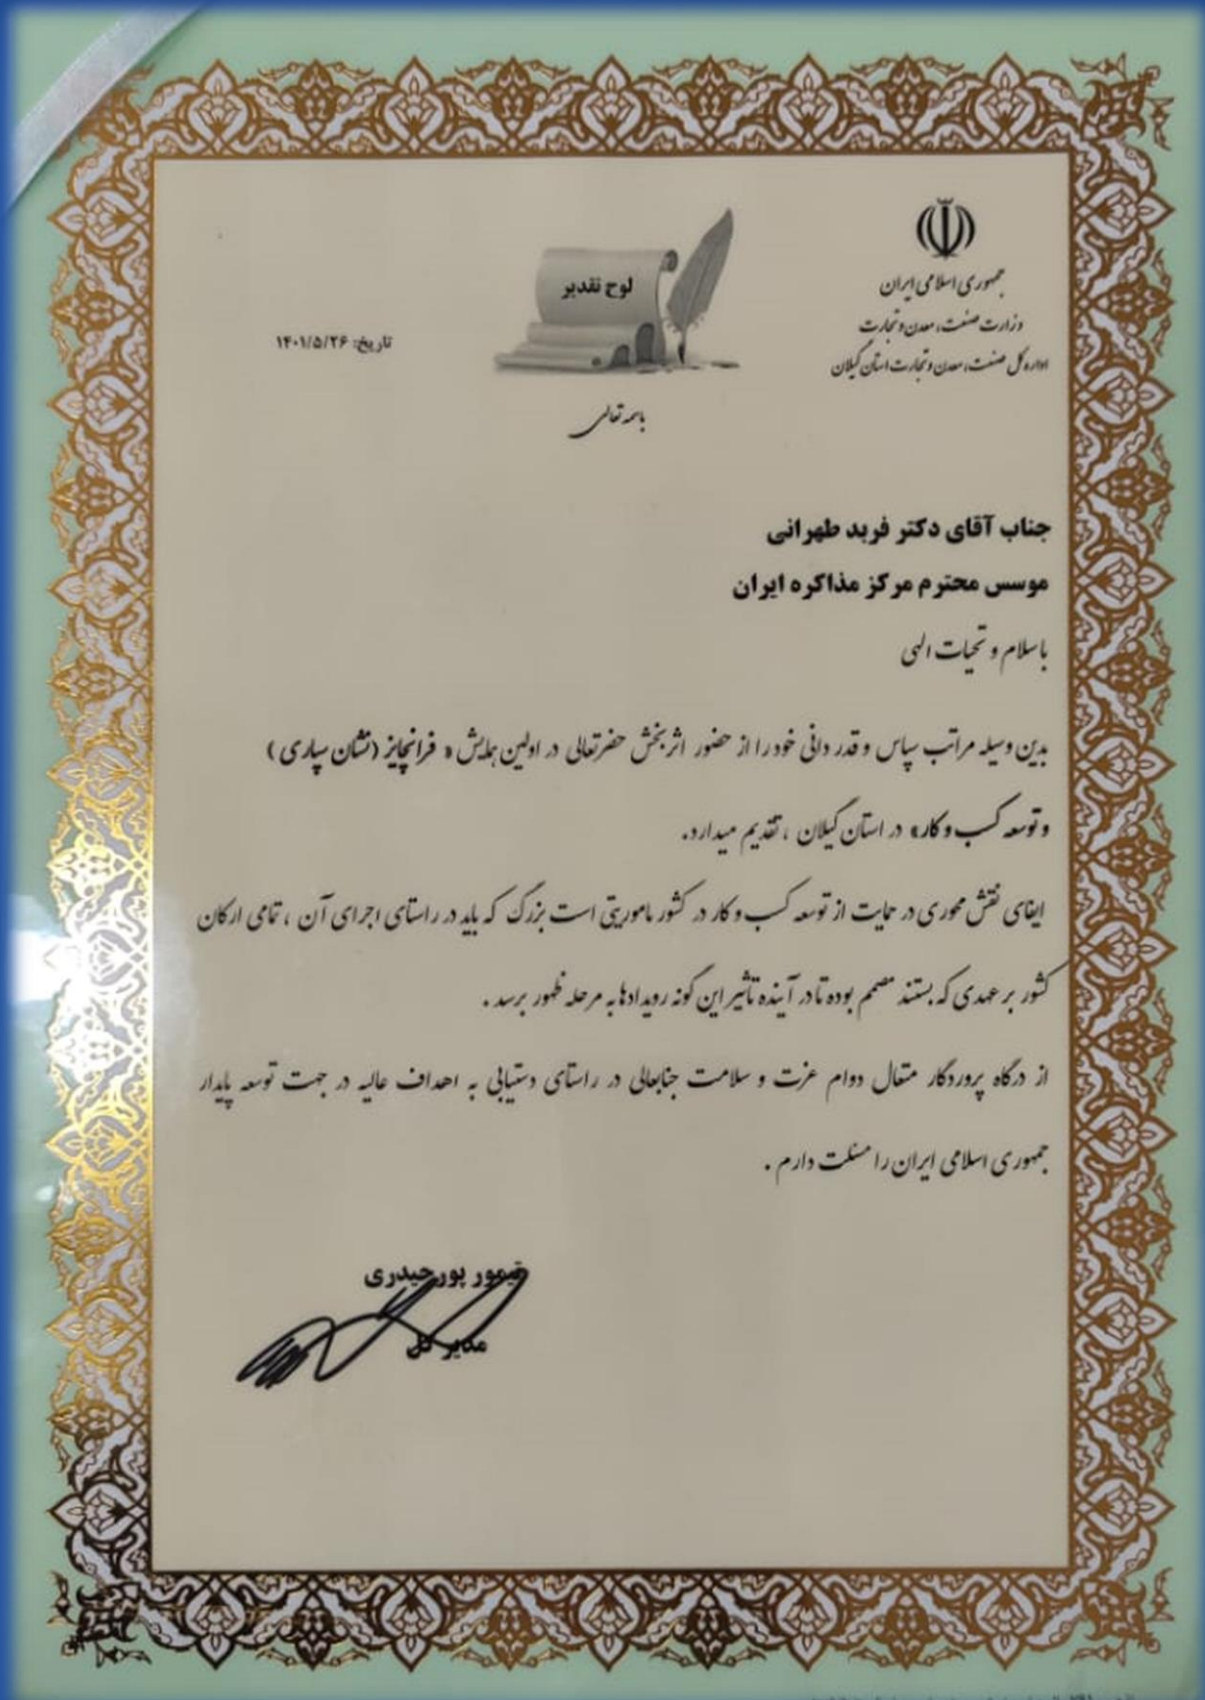 جمهوری اسلامی ایران
وزارت صنعت، معدن و تجارت
اداره کل صنعت، معدن و تجارت استان گیلان
لوح تقدیر
تاریخ: ۱۴۰۱/۵/۲۶
باسمه تعالی
جناب آقای دکتر فربد طهرانی
موسس محترم مرکز مذاکره ایران
با سلام و تحیات الهی
بدین وسیله مراتب سپاس و قدر دانی خود را از حضور اثربخش حضرتعالی در اولین همایش « فرانچایز (نشان سپاری )
و توسعه کسب و کار» در استان گیلان ، تقدیم میدارد.
ایفای نقش محوری در حمایت از توسعه کسب و کار در کشور ماموریتی است بزرگ که باید در راستای اجرای آن ، تمامی ارکان
کشور بر عهدی که بستند مصمم بوده تا در آینده تأثیر این گونه رویدادها به مرحله ظهور برسد .
از درگاه پروردگار متعال دوام عزت و سلامت جنابعالی در راستای دستیابی به اهداف عالیه در جهت توسعه پایدار
جمهوری اسلامی ایران را مسئلت دارم .
تیمور پورحیدری
مدیر کل